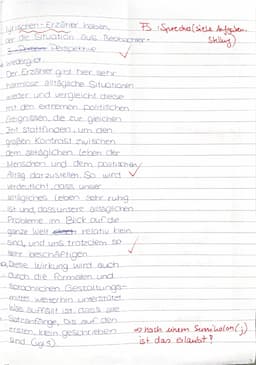 lyrischen-Erzähler haben, FS: Sprecher (siehe Aufgaben-
der die Situation aus Beobachter- stellung)
Perspektive
wiedergibt.
Der Erzähler gibt hier sehr
harmlose alltägliche Situationen
wieder und vergleicht diese
mit den extremen politischen
Ereignissen, die zur gleichen
Zeit stattfinden, um den
großen Kontrast zwischen
dem alltäglichen Leben der
Menschen und dem politischen
Alltag darzustellen. So wird
verdeutlicht, dass unser
alltägliches Leben sehr ruhig
ist und, dass unsere alltäglichen
Probleme im Blick auf die
ganze Welt relativ klein
sind, und uns trotzdem so
sehr beschäftigen.
Diese Wirkung wird auch
durch die formalen und
sprachlichen Gestaltungs-
mittel weiterhin unterstützt.
Was auffällt ist, dass alle
Satzanfänge, bis auf den
ersten, klein geschrieben => nach einem Semikolon (;)
sind. ist das erlaubt?